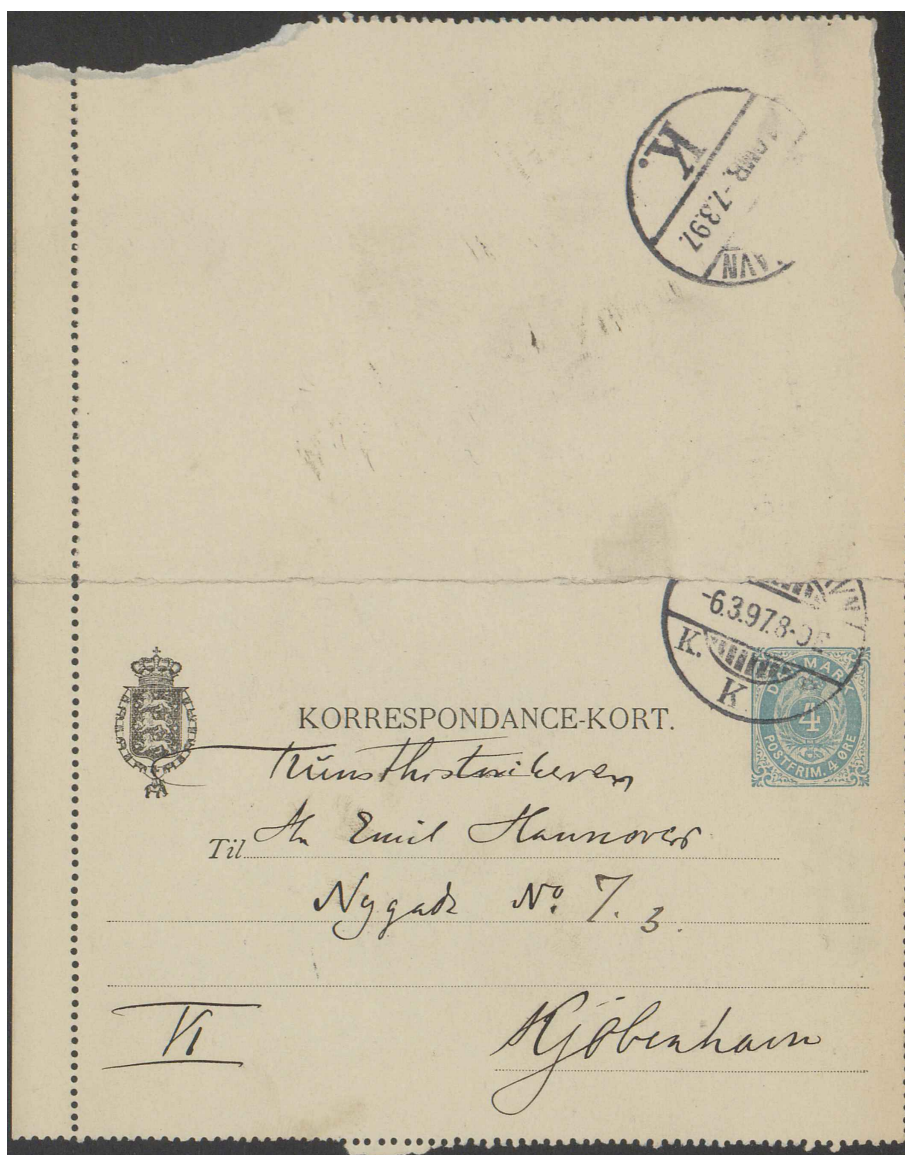 K.
OMR. -7.3.97.
AVN
-6.3.97.8-
K.
K
DANMARK
4
POSTFRIM. 4 ØRE
KORRESPONDANCE-KORT.
Kunsthistorikeren
Til Hr Emil Hannover
Nygade No. 7. 3.
Kjöbenhavn